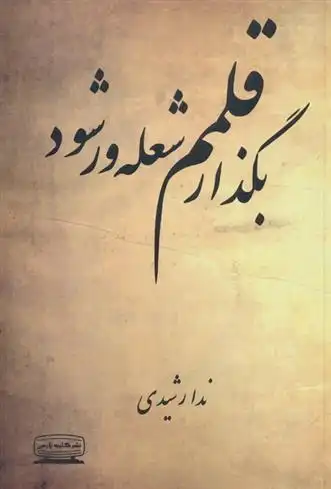 بگذار قلمم شعله ور شود
ندا رشیدی
نشر کتیبه پارسی